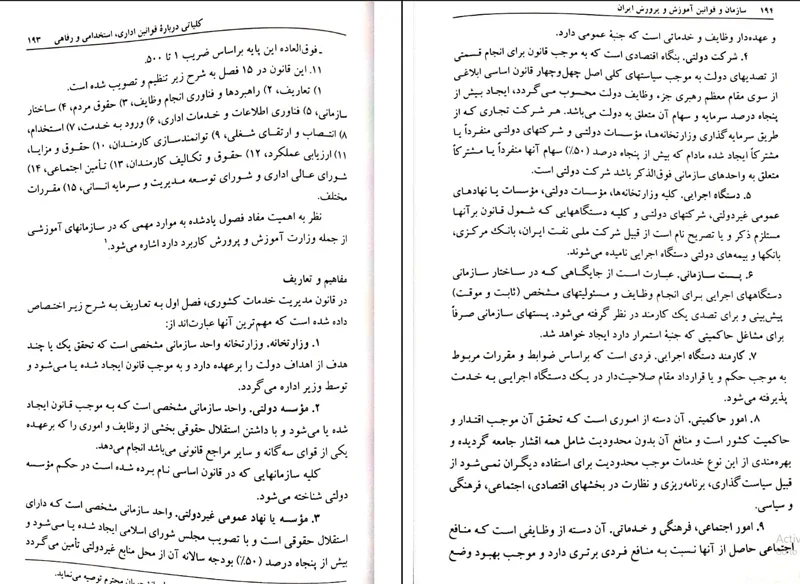 کلیاتی دربارهٔ قوانین اداری، استخدامی و رفاهی ۱۹۳
ـ فوق‌العاده این پایه براساس ضریب ۱ تا ۵۰۰.
۱۱. این قانون در ۱۵ فصل به شرح زیر تنظیم و تصویب شده است.
۱) تعاریف، ۲) راهبردها و فناوری انجام وظایف، ۳) حقوق مردم، ۴) ساختار
سازمانی، ۵) فناوری اطلاعات و خدمات اداری، ۶) ورود به خدمت، ۷) استخدام،
۸) انتصاب و ارتقای شغلی، ۹) توانمندسازی کارمندان، ۱۰) حقوق و مزایا،
۱۱) ارزیابی عملکرد، ۱۲) حقوق و تکالیف کارمندان، ۱۳) تأمین اجتماعی، ۱۴)
شورای عالی اداری و شورای توسعه مدیریت و سرمایه انسانی، ۱۵) مقررات
مختلف.
نظر به اهمیت مفاد فصول یادشده به موارد مهمی که در سازمانهای آموزشی
از جمله وزارت آموزش و پرورش کاربرد دارد اشاره می‌شود.۱
مفاهیم و تعاریف
در قانون مدیریت خدمات کشوری، فصل اول به تعاریف به شرح زیر اختصاص
داده شده است که مهم‌ترین آنها عبارت‌اند از:
۱. وزارتخانه. وزارتخانه واحد سازمانی مشخصی است که تحقق یک یا چند
هدف از اهداف دولت را برعهده دارد و به موجب قانون ایجاد شده یا می‌شود و
توسط وزیر اداره می‌گردد.
۲. مؤسسه دولتی. واحد سازمانی مشخصی است که به موجب قانون ایجاد
شده یا می‌شود و با داشتن استقلال حقوقی بخشی از وظایف و اموری را که برعهده
یکی از قوای سه‌گانه و سایر مراجع قانونی می‌باشد انجام می‌دهد.
کلیه سازمانهایی که در قانون اساسی نام برده شده است در حکم مؤسسه
دولتی شناخته می‌شود.
۳. مؤسسه یا نهاد عمومی غیردولتی. واحد سازمانی مشخصی است که دارای
استقلال حقوقی است و با تصویب مجلس شورای اسلامی ایجاد شده یا می‌شود و
بیش از پنجاه درصد (۵۰٪) بودجه سالانه آن از محل منابع غیردولتی تأمین می‌گردد
محترم توصیه می‌نماید.
۱۹۴ سازمان و قوانین آموزش و پرورش ایران
و عهده‌دار وظایف و خدماتی است که جنبهٔ عمومی دارد.
۴. شرکت دولتی. بنگاه اقتصادی است که به موجب قانون برای انجام قسمتی
از تصدیهای دولت به موجب سیاستهای کلی اصل چهل‌وچهار قانون اساسی ابلاغی
از سوی مقام معظم رهبری جزء وظایف دولت محسوب می‌گردد، ایجاد بیش از
پنجاه درصد سرمایه و سهام آن متعلق به دولت می‌باشد. هر شرکت تجاری که از
طریق سرمایه‌گذاری وزارتخانه‌ها، مؤسسات دولتی و شرکتهای دولتی منفرداً یا
مشترکاً ایجاد شده مادام که بیش از پنجاه درصد (۵۰٪) سهام آنها منفرداً یا مشترکاً
متعلق به واحدهای سازمانی فوق‌الذکر باشد شرکت دولتی است.
۵. دستگاه اجرایی. کلیه وزارتخانه‌ها، مؤسسات دولتی، مؤسسات یا نهادهای
عمومی غیردولتی، شرکتهای دولتی و کلیه دستگاههایی که شمول قانون برآنها
مستلزم ذکر و یا تصریح نام است از قبیل شرکت ملی نفت ایران، بانک مرکزی،
بانکها و بیمه‌های دولتی دستگاه اجرایی نامیده می‌شوند.
۶. پست سازمانی. عبارت است از جایگاهی که در ساختار سازمانی
دستگاههای اجرایی برای انجام وظایف و مسئولیتهای مشخص (ثابت و موقت)
پیش‌بینی و برای تصدی یک کارمند در نظر گرفته می‌شود. پستهای سازمانی صرفاً
برای مشاغل حاکمیتی که جنبهٔ استمرار دارد ایجاد خواهد شد.
۷. کارمند دستگاه اجرایی. فردی است که براساس ضوابط و مقررات مربوط
به موجب حکم و یا قرارداد مقام صلاحیت‌دار در یک دستگاه اجرایی به خدمت
پذیرفته می‌شود.
۸. امور حاکمیتی. آن دسته از اموری است که تحقق آن موجب اقتدار و
حاکمیت کشور است و منافع آن بدون محدودیت شامل همه اقشار جامعه گردیده و
بهره‌مندی از این نوع خدمات موجب محدودیت برای استفاده دیگران نمی‌شود از
قبیل سیاست‌گذاری، برنامه‌ریزی و نظارت در بخشهای اقتصادی، اجتماعی، فرهنگی
و سیاسی.
۹. امور اجتماعی، فرهنگی و خدماتی. آن دسته از وظایفی است که منافع
اجتماعی حاصل از آنها نسبت به منافع فردی برتری دارد و موجب بهبود وضع